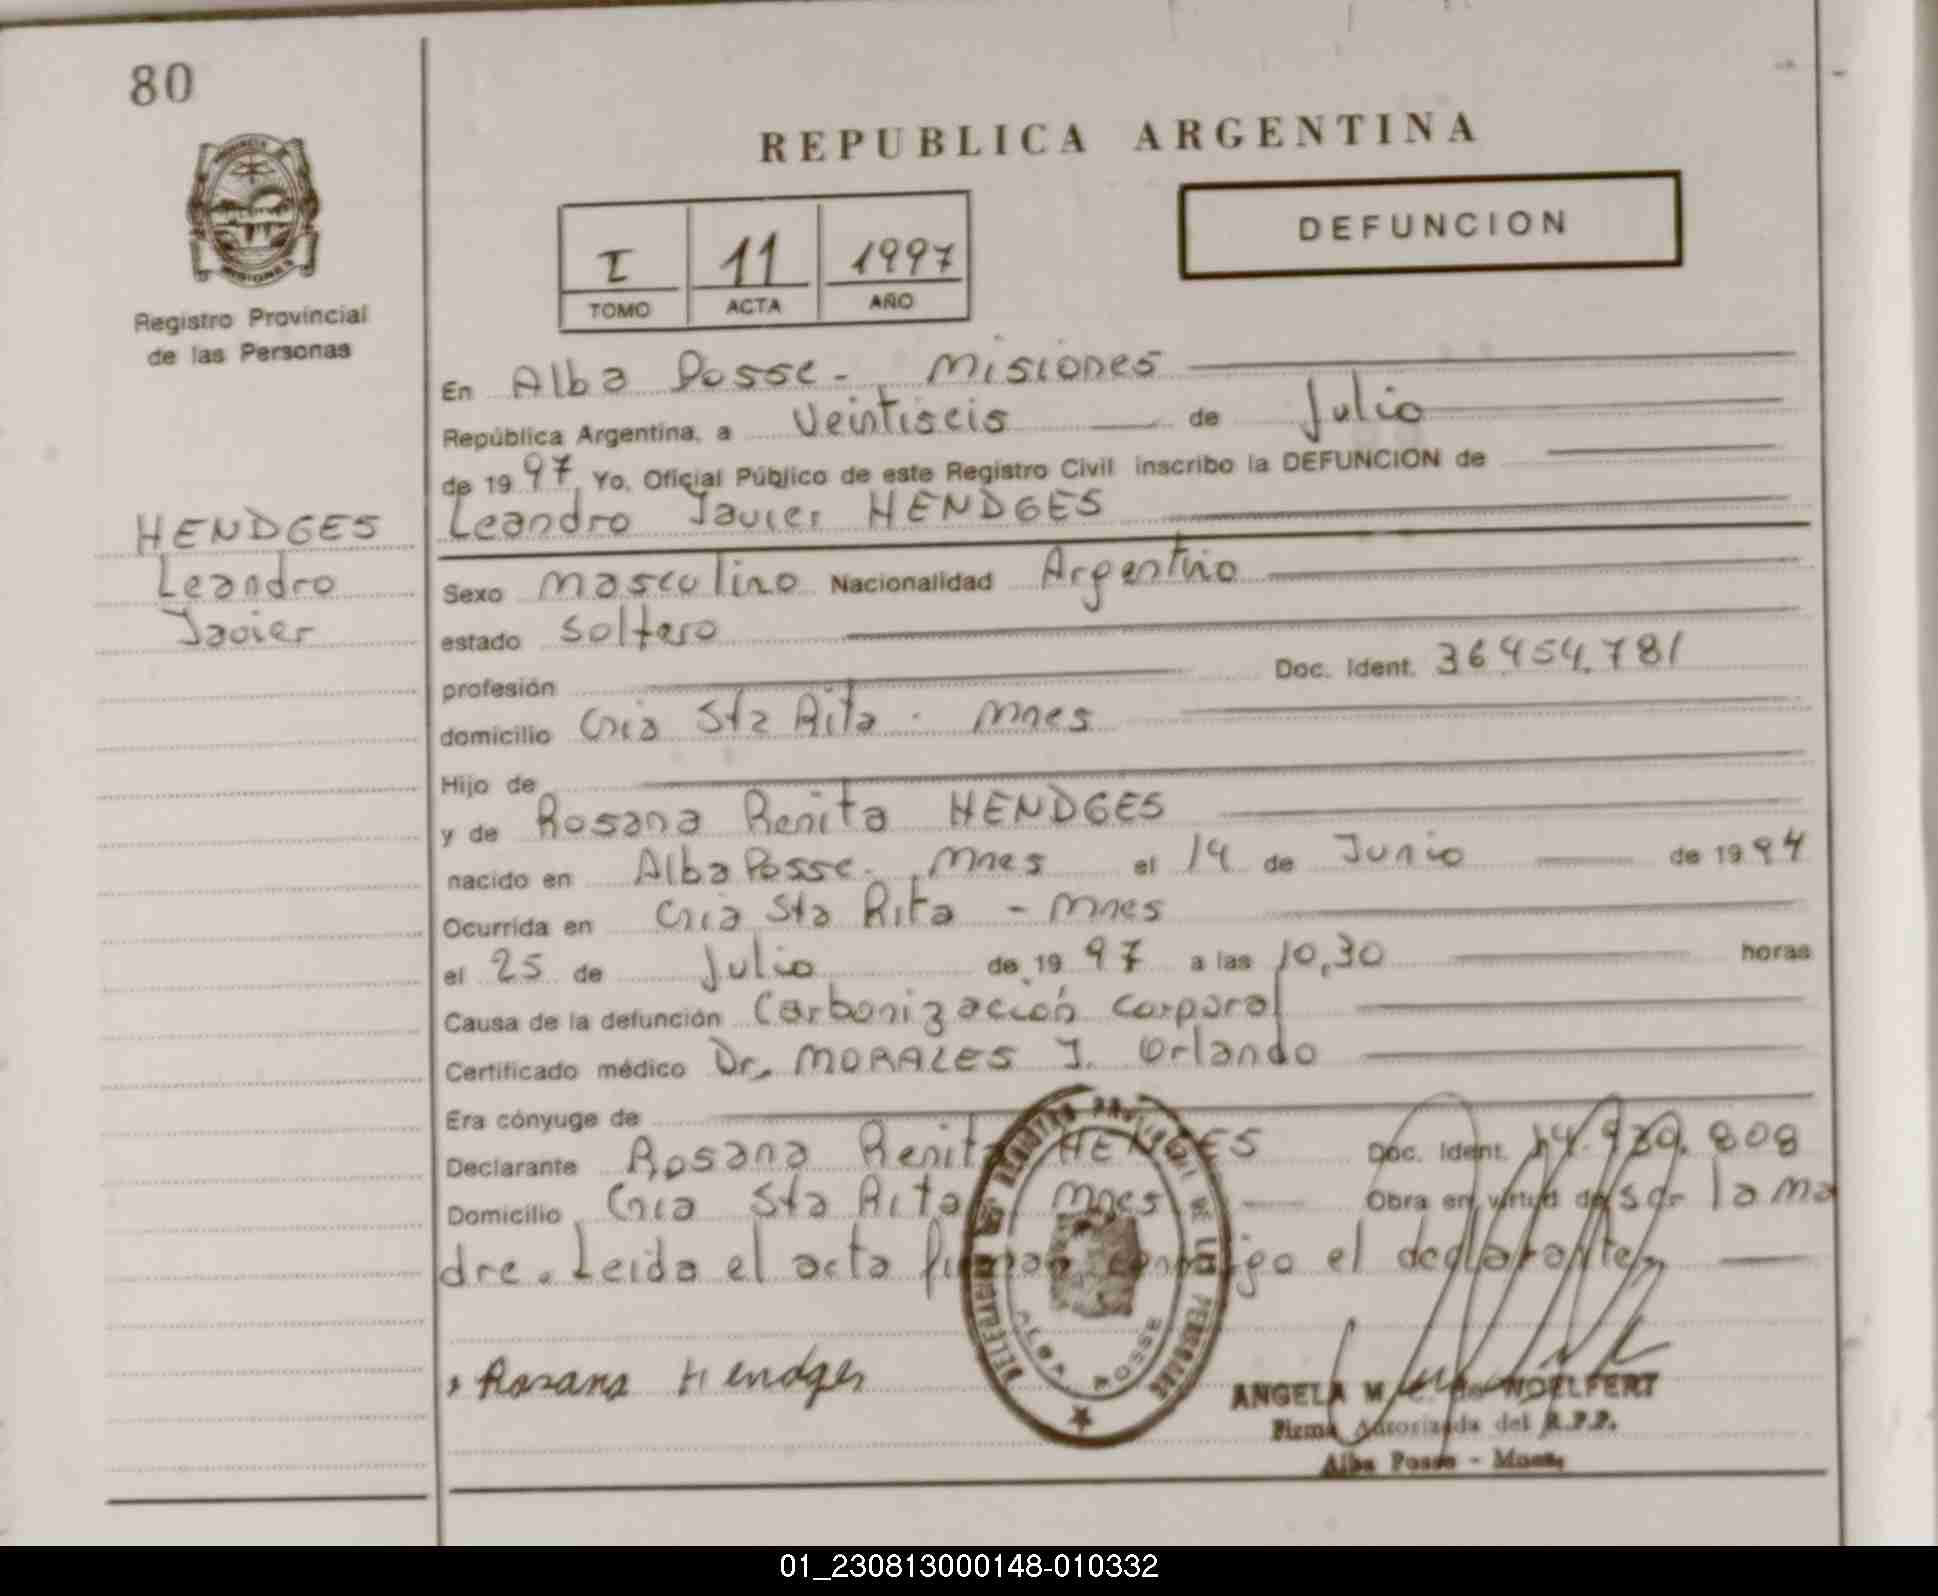 80
REPUBLICA ARGENTINA
DEFUNCION
I 11 1997
TOMO ACTA AÑO
MISIONES
Registro Provincial
de las Personas
HENDGES
Leandro
Javier
En Alba Posse - Misiones
República Argentina, a Veintiseis de Julio
de 1997 Yo, Oficial Público de este Registro Civil inscribo la DEFUNCION de
Leandro Javier HENDGES
Sexo masculino Nacionalidad Argentino
estado soltero
profesión Doc. Ident. 36.454.781
domicilio Cnia Sta Rita - Mnes
Hijo de
y de Rosana Renita HENDGES
nacido en Alba Posse - Mnes el 14 de Junio de 1994
Ocurrida en Cnia Sta Rita - Mnes
el 25 de Julio de 1997 a las 10,30 horas
Causa de la defunción Carbonización corporal
Certificado médico Dr. MORALES J. Orlando
Era cónyuge de
Declarante Rosana Renita HENDGES Doc. Ident. 808
Domicilio Cnia Sta Rita - Mnes Obra en virtud de ser la ma
dre. Leida el acta firman conmigo el declarante.
Rosana Hendges
DELEGACION DEL REGISTRO PROVINCIAL DE LAS PERSONAS
ALBA POSSE
ANGELA M. de NOELFERT
Firma Autorizada del R.P.P.
Alba Posse - Mnes.
01_230813000148-010332